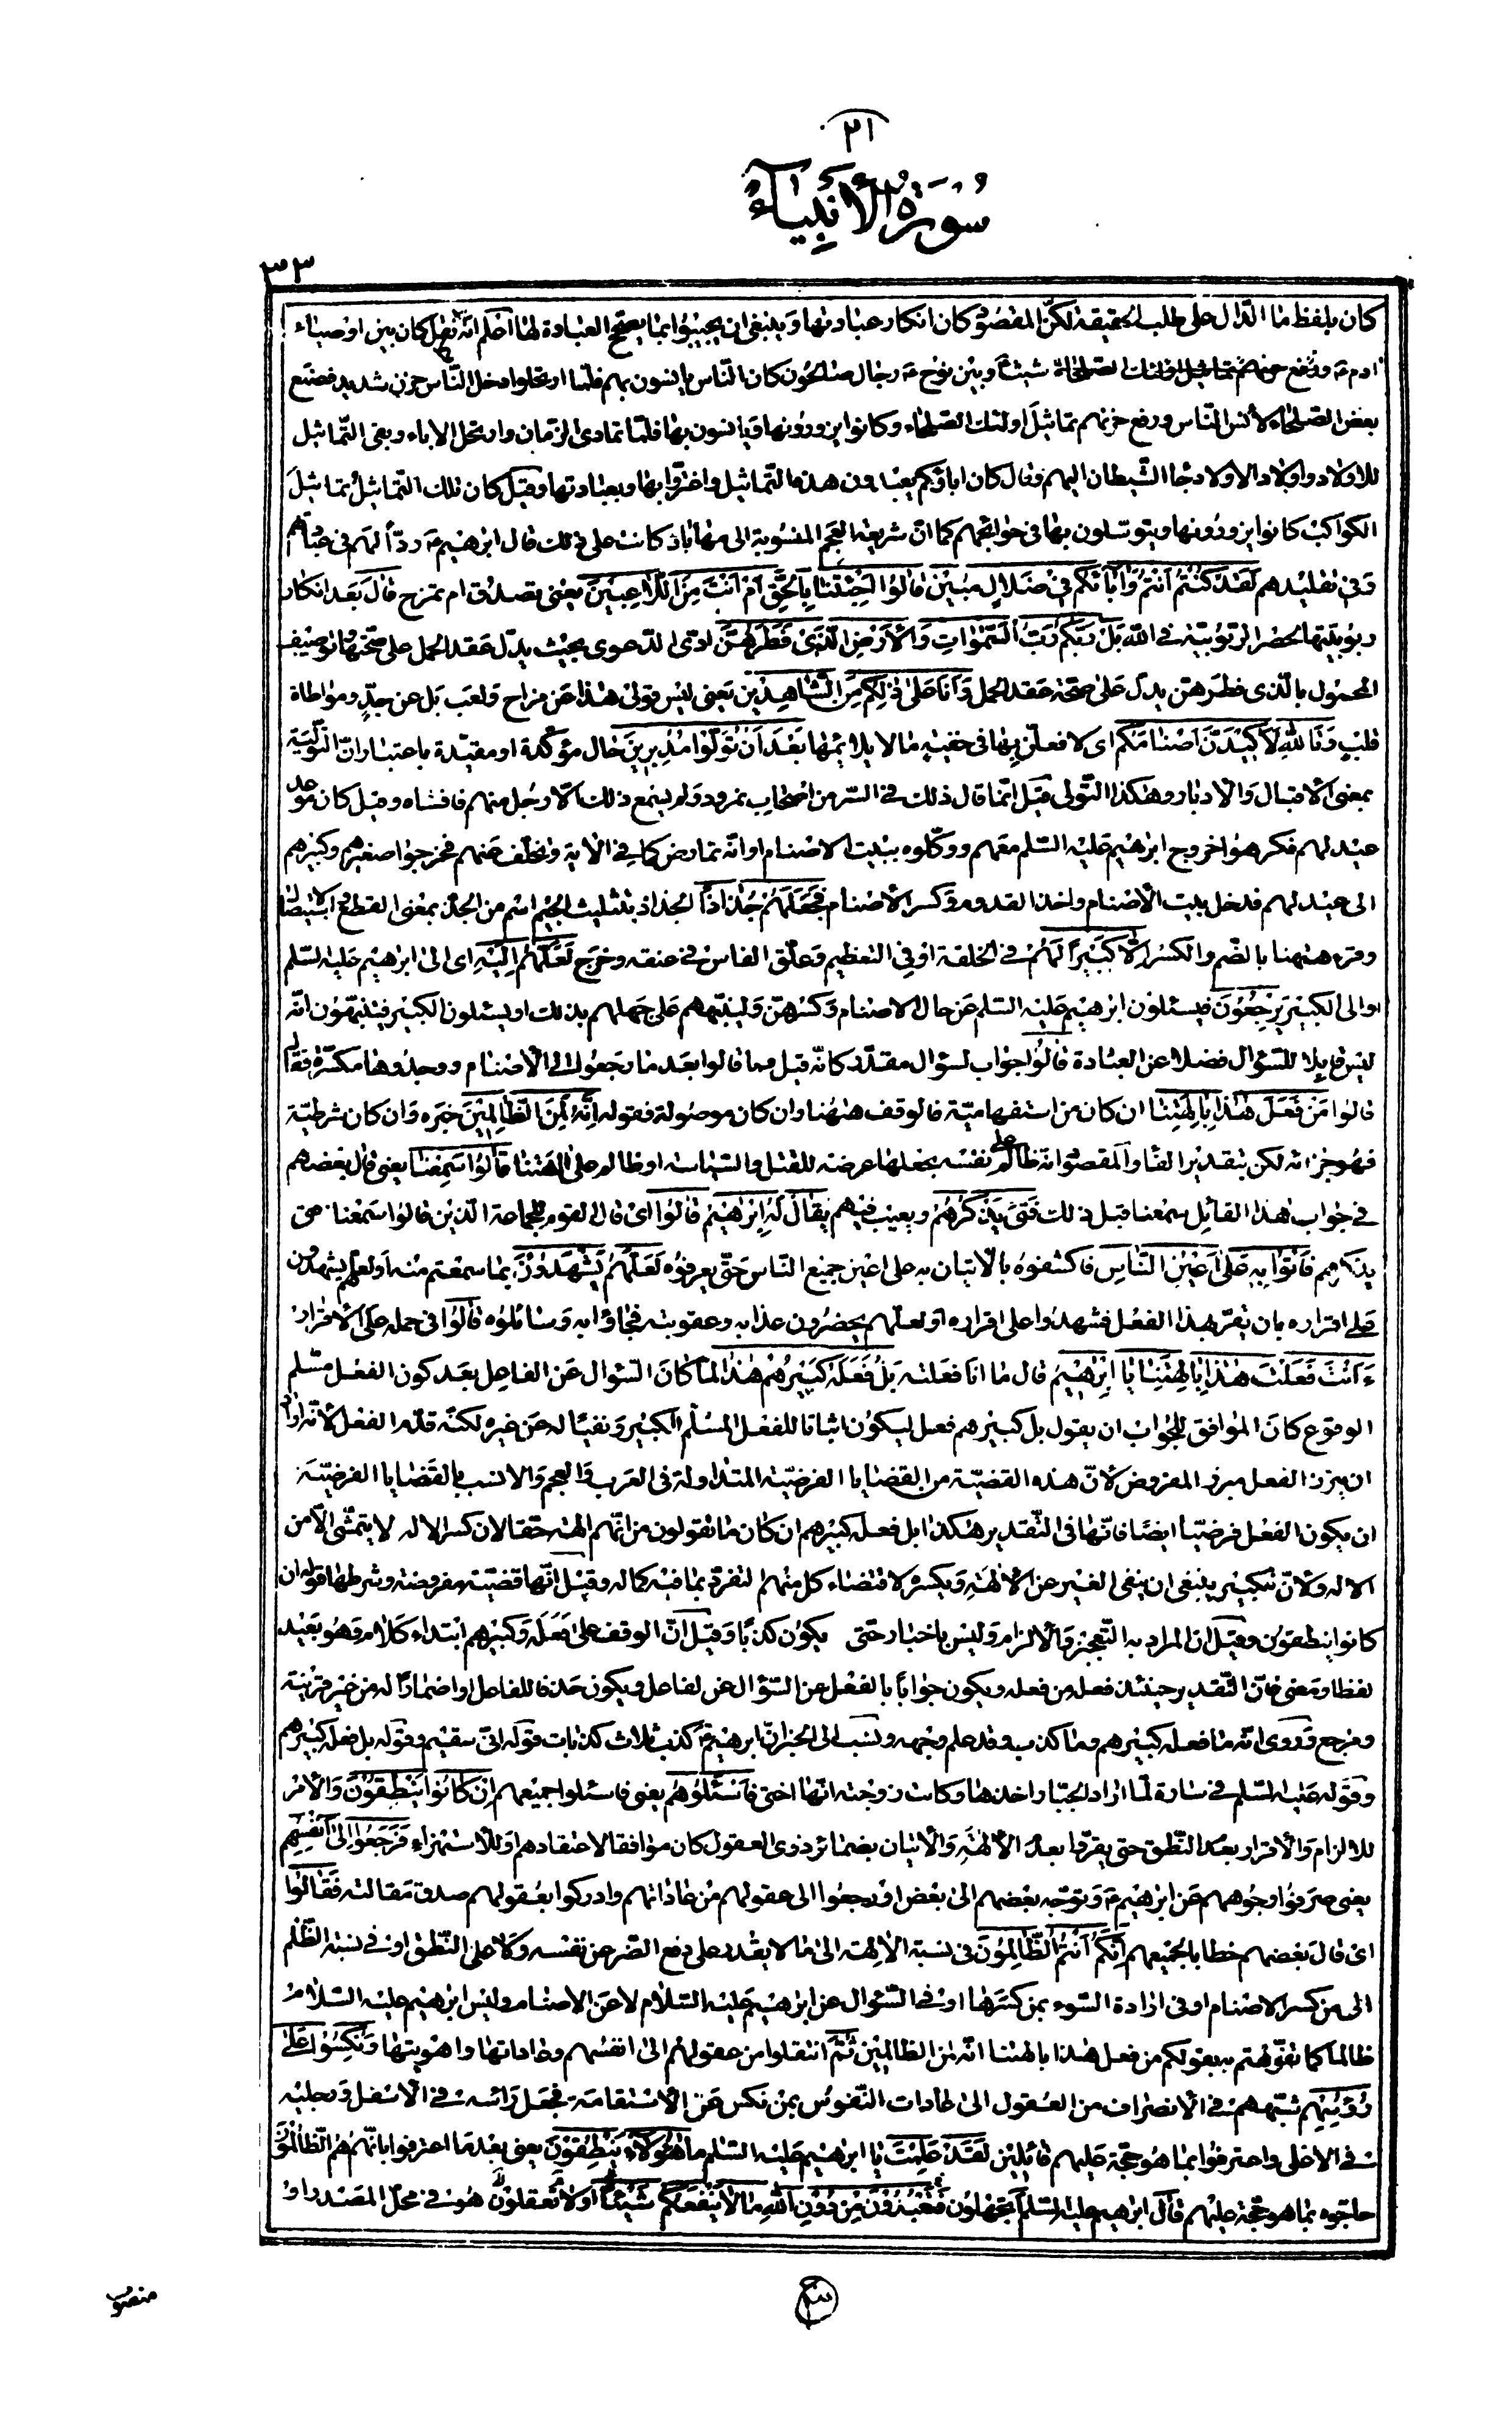 ٢١
سُورَةُ الْأَنْبِيَاءِ
٣٣
كان بلفظ ما الدّال على طلب الحقيقة لكنّ المقصود كان انكار عبادتها وينبغى ان يجيبوا بما يصحّح العبادة لها اعلم انّه نقل كان بين اوصياء
ادم ؑ ووقع حزنهم تماثيل اولئك الصلحاء شيث وبين نوح ؑ رجال صالحون كان النّاس يأنسون بهم فلمّا ارتحلوا دخل النّاس حزن شديد فصنع
بعض الصلحاء لأنس النّاس ورفع حزنهم تماثيل اولئك الصلحاء وكانوا يزورونها ويأنسون بها فلمّا تمادى الزّمان وارتحل الاباء وبقى التّماثيل
للاولاد واولاد الاولاد جاء الشّيطان اليهم وقال كان اباؤكم يعبدون هذه التّماثيل واغترّوا بها وبعبادتها وقيل كان تلك التّماثيل تماثيل
الكواكب كانوا يزورونها ويتوسّلون بها فى حوائجهم كما انّ شريعة العجم المنسوبة الى مهاباد كانت على ذلك قال ابرهيم ؑ ردّاً لهم فى عبادتهم
وفى تقليدهم لَقَدْ كُنْتُمْ أَنْتُمْ وَآبَاؤُكُمْ فِي ضَلَالٍ مُبِينٍ قَالُوا أَجِئْتَنَا بِالْحَقِّ أَمْ أَنْتَ مِنَ اللَّاعِبِينَ يعنى بصدق ام تمزح قَالَ بعد انكار
ربوبيّتها بحصر الرّبوبيّة فى اللّه بَلْ رَبُّكُمْ رَبُّ السَّمٰوَاتِ وَالْأَرْضِ الَّذِي فَطَرَهُنَّ ادّى الدّعوى بحيث يدلّ عقد الحمل على صحّتها وتوصيف
المحمول بالّذى فطرهنّ يدلّ على صحّة عقد الحمل وَأَنَا عَلَىٰ ذَٰلِكُمْ مِنَ الشَّاهِدِينَ يعنى ليس قولى هذا عن مزاح ولعب بل عن جدّ ومواطاة
قلب وَتَاللَّهِ لَأَكِيدَنَّ أَصْنَامَكُمْ اى لافعلنّ بها فى خفية ما لا يلائمها بَعْدَ أَنْ تُوَلُّوا مُدْبِرِينَ حال مؤكّدة او مقيّدة باعتبار انّ التّولية
بمعنى الاقبال والادبار وهكذا التّولّى قيل انّما قال ذلك فى السّر من اصحاب نمرود ولم يسمع ذلك الّا رجل منهم فافشاه وقيل كان موعد
عيد لهم فكرهوا خروج ابرهيم عليه السّلم معهم ووكّلوه ببيت الاصنام او انّه تمارض كما فى الاية وتخلّف عنهم فخرجوا صغيرهم وكبيرهم
الى عيد لهم فدخل بيت الأصنام واخذ القدوم وكسر الأصنام فَجَعَلَهُمْ جُذَاذًا الجذاذ بتثليث الجيم اسم من الجذّ بمعنى القطع الاستيصالى
وقرء ههنا بالضّم والكسر إِلَّا كَبِيرًا لَهُمْ فى الخلقة او فى التعظيم وعلّق الفاس فى عنقه وخرج لَعَلَّهُمْ إِلَيْهِ اى الى ابرهيم عليه السّلم
او الى الكبير يَرْجِعُونَ فيسئلون ابرهيم عليه السّلم عن حال الاصنام وكسرهنّ ولينبّههم على جهلهم بذلك او يسئلون الكبير فيتنبّهون انّه
ليس قابلا للسّؤال فضلا عن العبادة قَالُوا جواب لسؤال مقدّر كانّه قيل فما قالوا بعد ما رجعوا الى الأصنام ووجدوها مكسّرة فقال
قالوا مَنْ فَعَلَ هَٰذَا بِآلِهَتِنَا ان كان من استفهاميّة فالوقف ههنا وان كان موصولة فقوله إِنَّهُ لَمِنَ الظَّالِمِينَ خبره وان كان شرطيّة
فهو جزائه لكن بتقدير الفاء والمقصود انّه ظالم على نفسه بجعلها عرضة للقتل والسّياسة او ظالم على الهتنا قَالُوا سَمِعْنَا يعنى قال بعضهم
فى جواب هذا القائل سمعنا قبل ذلك فَتًى يَذْكُرُهُمْ ويعيب فيهم يُقَالُ لَهُ إِبْرَاهِيمُ قَالُوا اى قال القوم للجماعة الّذين قالوا سمعنا فتى
يذكرهم فَأْتُوا بِهِ عَلَىٰ أَعْيُنِ النَّاسِ فاكشفوه بالاتيان به على اعين جميع النّاس حتّى يعرفوه لَعَلَّهُمْ يَشْهَدُونَ بما سمعتم منه او لعلّهم يشهدون
على اقراره بان يقرّ بهذا الفعل فشهدوا على اقراره او لعلّهم يحضرون عذابه وعقوبته فجاؤا به وسائلوه قَالُوا فى حمله على الأقرار
ءَأَنْتَ فَعَلْتَ هَٰذَا بِآلِهَتِنَا يَا إِبْرَاهِيمُ قال ما انا فعلته بَلْ فَعَلَهُ كَبِيرُهُمْ هَٰذَا لما كان السّؤال عن الفاعل بعد كون الفعل مسلّم
الوقوع كان الموافق للجواب ان يقول بل كبيرهم فعل ليكون اثباتا للفعل المسلّم للكبير ونفيا له عن غيره لكنّه قدّم الفعل لأنّه اراد
ان يبرز الفعل مبرز المفروض لأنّ هذه القضيّة من القضايا الفرضيّة المتداولة فى العرب والعجم والانسب بالقضايا الفرضيّة
ان يكون الفعل فرضيّا ايضا فانّها فى التّقدير هكذا بل فعله كبيرهم ان كان ما تقولون من انّهم الهة حقّا لان كسر الاله لا يتمشّى الّا من
الاله ولأنّ الكبير ينبغى ان ينفى الغير عن الألهة ويكسره لاقتضاء كلّ منهم التفرّد بما فيه كماله وقيل انّها قضيّة مفروضة وشرطها قوله ان
كانوا ينطقون وقيل انّ المراد به التّعجيز والألزام وليس باخبار حتّى يكون كذبا وقيل انّ الوقف على فعله وكبيرهم ابتداء كلام وهو بعيد
لفظا ومعنى فانّ التّقدير حينئذ فعله من فعله ويكون جوابا بالفعل عن السّؤال عن الفاعل ويكون حذفا للفاعل او اضمارا له من غير قرينة
ومرجع وروى انّه ما فعله كبيرهم وما كذب وقد علم وجهه ونسب الى الخبر انّ ابرهيم ؑ كذب ثلاث كذبات قوله انّى سقيم وقوله بل فعله كبيرهم
وقوله عليه السّلم فى سارة لمّا اراد الجبّار اخذها وكانت زوجته انّها اختى فَاسْئَلُوهُمْ يعنى فاسئلوا جميعهم إِنْ كَانُوا يَنْطِقُونَ والأمر
للالزام والأقرار بعد النّطق حتى يقرّوا بعد الألهة والأتيان بضمائر ذوى العقول كان موافقا لاعتقادهم او للاستهزاء فَرَجَعُوا إِلَىٰ أَنْفُسِهِمْ
يعنى صرفوا وجوههم عن ابرهيم ؑ وتوجّه بعضهم الى بعض او رجعوا الى عقولهم من عاداتهم وادركوا بعقولهم صدق مقالته فَقَالُوا
اى قال بعضهم خطابا لجميعهم إِنَّكُمْ أَنْتُمُ الظَّالِمُونَ فى نسبة الالهة الى ما لا يقدر على دفع الضّر عن نفسه ولا على النّطق او فى نسبة الظّلم
الى من كسر الاصنام او فى ارادة السّوء بمن كسرها او فى السّؤال عن ابرهيم عليه السّلام لا عن الاصنام وليس ابرهيم عليه السّلام
ظالما كما تفوّهتم به بقولكم من فعل هذا بالهتنا انّه لمن الظالمين ثُمَّ انتقلوا من عقولهم الى انفسهم وعاداتها واهويتها وَنُكِسُوا عَلَىٰ
رُءُوسِهِمْ شبّههم فى الأنصراف من العقول الى عادات النّفوس بمن نكس عن الأستقامة فجعل رأسه فى الأسفل ورجليه
فى الاعلى واعترفوا بما هو حجّة عليهم قائلين لَقَدْ عَلِمْتَ يا ابرهيم عليه السّلم مَا هَٰؤُلَاءِ يَنْطِقُونَ يعنى بعد ما اعترفوا بانّهم هم الظّالمون
حاجّوه بما هو حجّة عليهم قَالَ ابرهيم عليه السّلم أ تجهلون فَتَعْبُدُونَ مِنْ دُونِ اللَّهِ مَا لَا يَنْفَعُكُمْ شَيْئًا او لا تعقلون هو فى محلّ المصدر او
منصوب